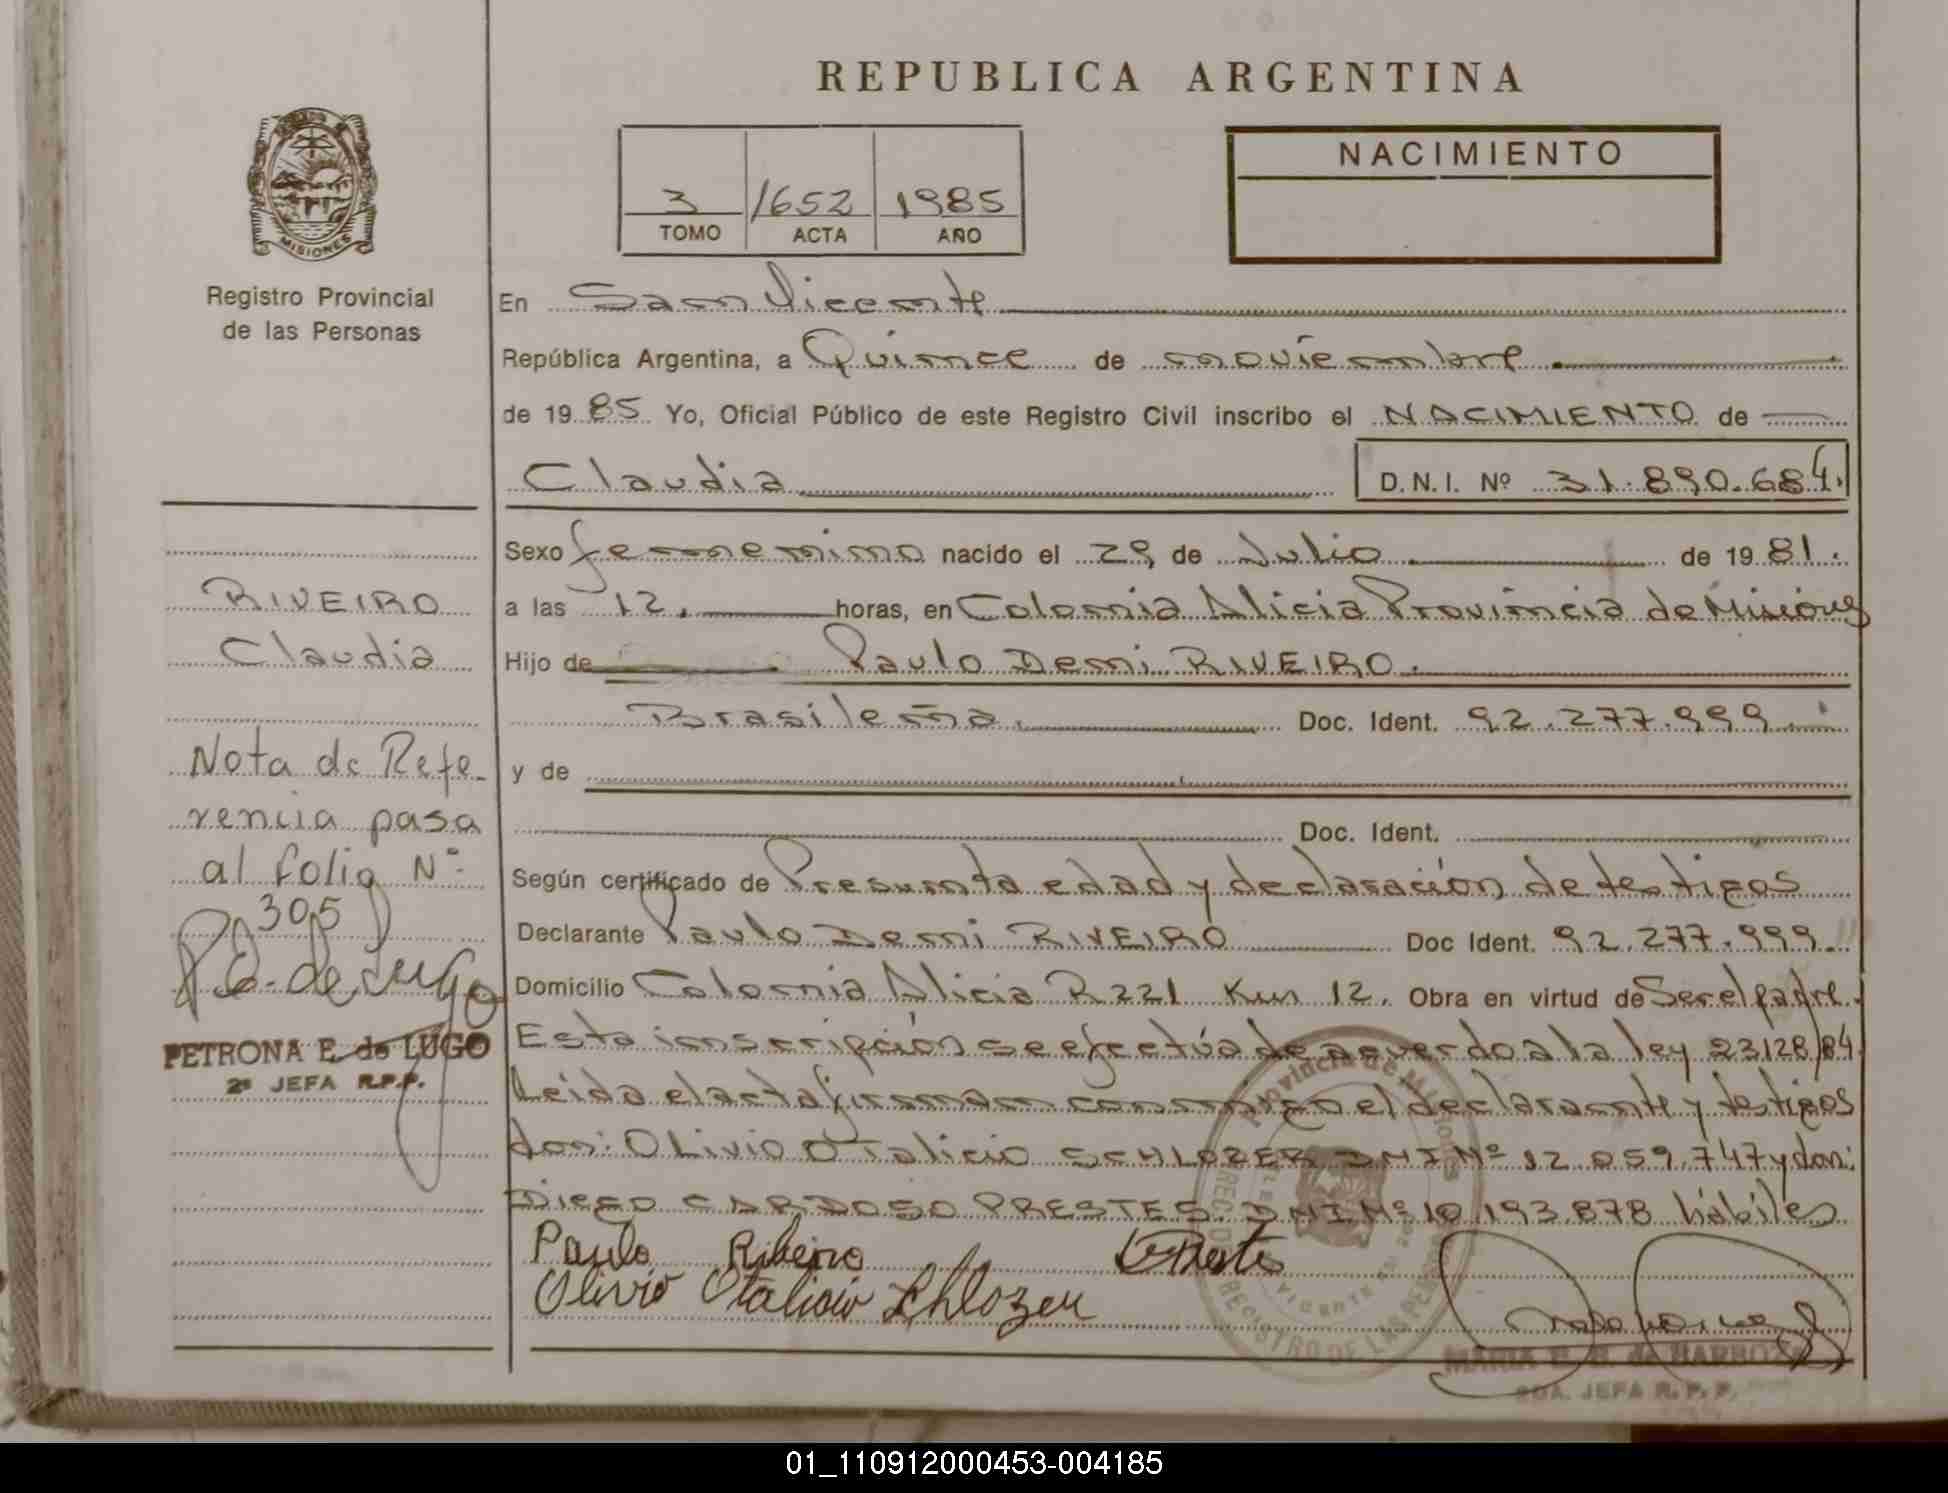 REPUBLICA ARGENTINA
NACIMIENTO
3 1652 1985
TOMO ACTA AÑO
MISIONES
Registro Provincial
de las Personas
En San Vicente
República Argentina, a Quince de noviembre
de 1985 Yo, Oficial Público de este Registro Civil inscribo el NACIMIENTO de
Claudia D.N.I. Nº 31.890.684.
Sexo femenino nacido el 29 de Julio de 1981.
a las 12. horas, en Colonia Alicia Provincia de Misiones
Hijo de Paulo Demi RIVEIRO.
Brasileña. Doc. Ident. 92.277.999.
y de
Doc. Ident.
Según certificado de Presunta edad y declaración de testigos
Declarante Paulo Demi RIVEIRO Doc Ident. 92.277.999.
Domicilio Colonia Alicia R221 Km 12. Obra en virtud de Ser el padre.
Esta inscripción se efectúa de acuerdo a la ley 23128/84
Leida el acta firman conmigo el declarante y testigos
don: OLivio OTalicio SCHLOZER DNI Nº 12.059.747 y don:
Diego CARDOSO PRESTES. DNI Nº 10.193.878 hábiles
Paulo Ribeiro
Olivio Otalicio Schlozer
Provincia de Misiones
REGISTRO DE LAS PERSONAS
MARIA E. B. de BARBOZA
2DA. JEFA R.P.P.
RIVEIRO
Claudia
Nota de Refe-
rencia pasa
al folio Nº
305
P. E. de Lugo
PETRONA E. de LUGO
2ª JEFA R.P.P.
01_110912000453-004185